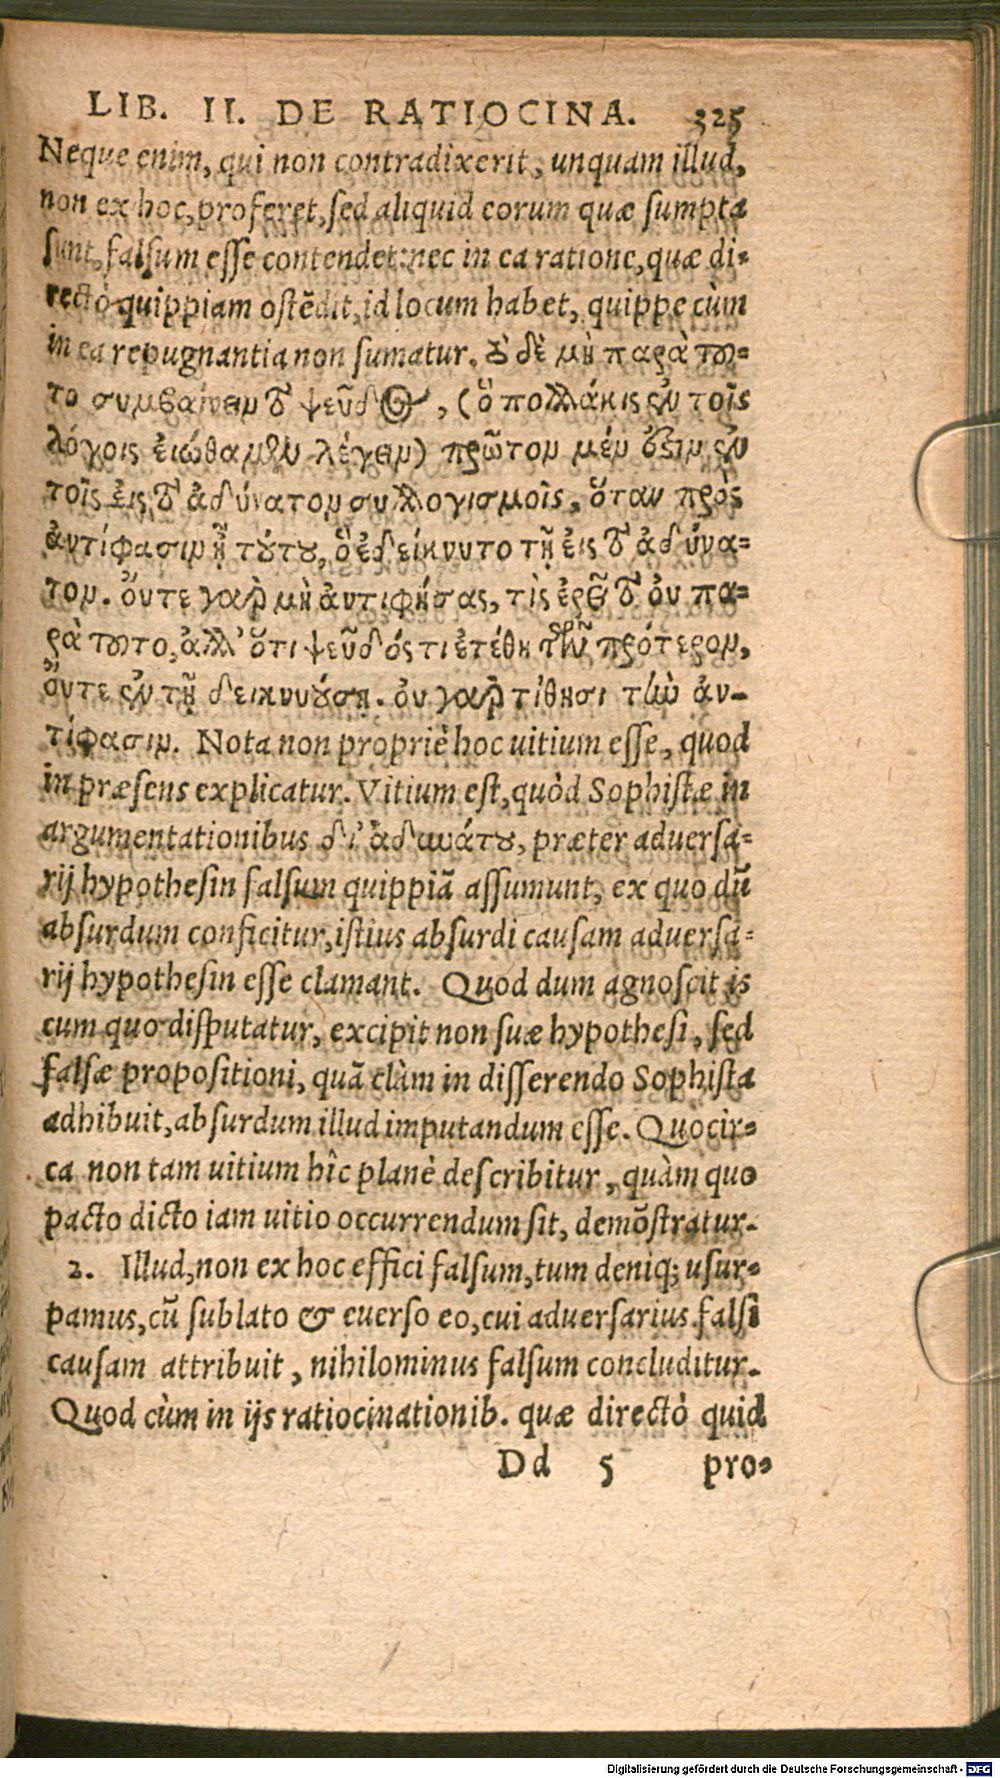 LIB. II. DE RATIOCINA. 325
Neque enim, qui non contradixerit, unquam illud,
non ex hoc, proferet, sed aliquid eorum quæ sumpta
sunt, falsum esse contendet: nec in ea ratione, quæ di-
rectò quippiam ostẽdit, id locum habet, quippe cùm
in ea repugnantia non sumatur. ὃ δὲ μὴ παρὰ τοῦ-
το συμβαίνειν τὸ ψεῦδος, (ὃ πολλάκις ἐν τοῖς
λόγοις εἰώθαμεν λέγειν) πρῶτον μέν ὅξιν ἐν
τοῖς εἰς τὸ ἀδύνατον συλλογισμοῖς, ὅταν πρὸς
ἀντίφασιν ᾖ τούτου, ὃ ἐδείκνυτο τῇ εἰς τὸ ἀδύνα-
τον. οὔτε γὰρ μὴ ἀντιφήσας, τὶς ἐρεῖ τὸ οὐ πα-
ρὰ τοῦτο, ἀλλ' ὅτι ψεῦδός τι ἐτέθη τῶν πρότερον,
οὔτε ἐν τῇ δεικνυούσῃ. οὐ γὰρ τίθησι τὼ ἀν-
τίφασιν. Nota non propriè hoc uitium esse, quod
in præsens explicatur. Vitium est, quòd Sophistæ in
argumentationibus δι' ἀδυνάτου, præter aduersa-
rij hypothesin falsum quippiã assumunt, ex quo dũ
absurdum conficitur, istius absurdi causam aduersa-
rij hypothesin esse clamant. Quod dum agnoscit is
cum quo disputatur, excipit non suæ hypothesi, sed
falsæ propositioni, quã clàm in disserendo Sophista
adhibuit, absurdum illud imputandum esse. Quocir-
ca non tam uitium hîc planè describitur, quàm quo
pacto dicto iam uitio occurrendum sit, demõstratur.
2. Illud, non ex hoc effici falsum, tum deniq; usur-
pamus, cũ sublato & euerso eo, cui aduersarius falsi
causam attribuit, nihilominus falsum concluditur.
Quod cùm in ijs ratiocinationib. quæ directò quid
Dd 5 pro-
Digitalisierung gefördert durch die Deutsche Forschungsgemeinschaft - DFG